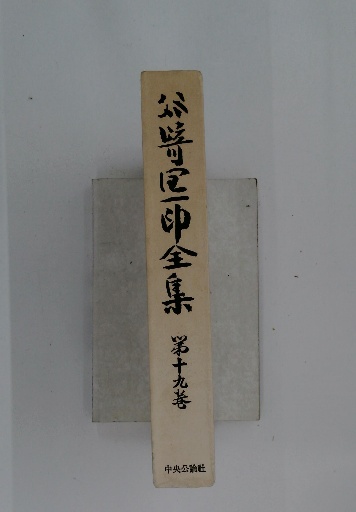 谷崎潤一郎全集
第十九巻
中央公論社